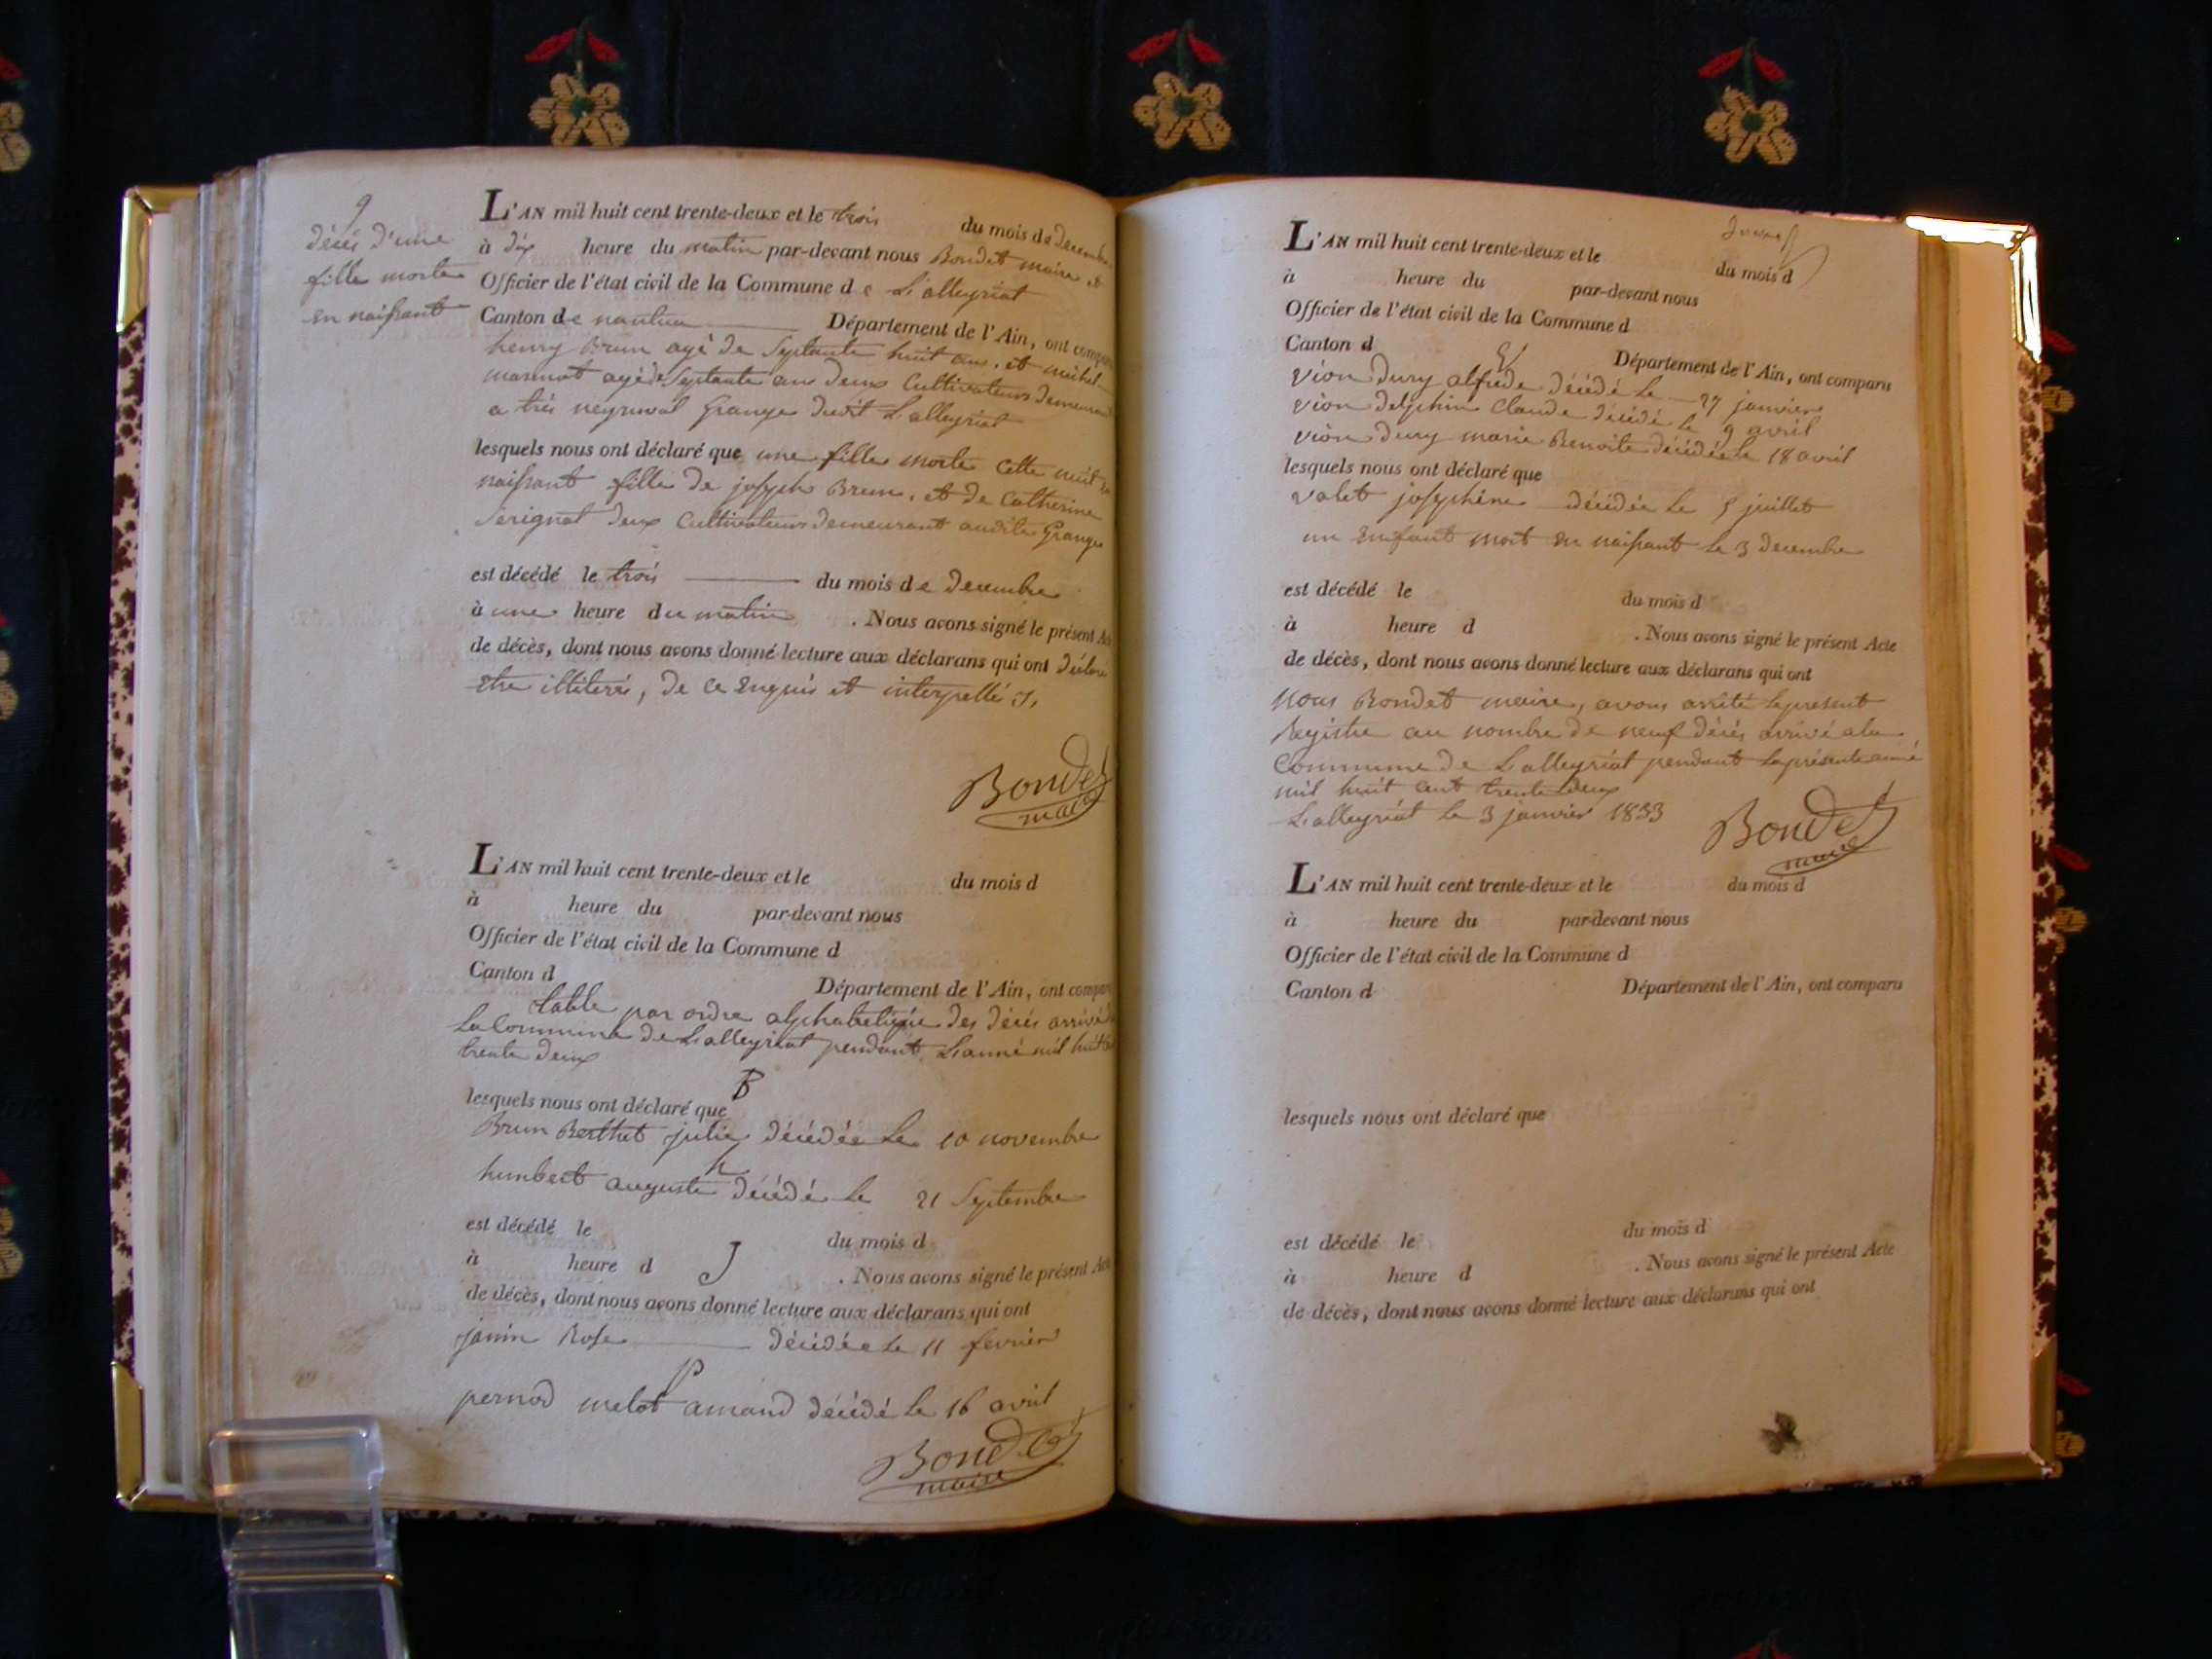 9
décès d'une
fille morte
en naissant
L'AN mil huit cent trente-deux et le trois du mois de Decembre
à dix heure du matin par-devant nous Bondet maire et
Officier de l'état civil de la Commune de Lalleyriat
Canton de nantua Département de l'Ain, ont comparu
henry Brun agé de Septante huit ans, et michel
marmot agé de Septante ans deux Cultivateurs demeurant
a Grange dudit Lalleyriat
lesquels nous ont déclaré que une fille morte cette nuit en
naissant fille de joseph Brun, et de Catherine
Serignat deux Cultivateurs demeurant audite Grange
est décédé le trois du mois de Decembre
à une heure du matin . Nous avons signé le présent Acte
de décès, dont nous avons donné lecture aux déclarans qui ont déclaré
etre illiterés, de ce Enquis et interpellés,
Bondet
maire
L'AN mil huit cent trente-deux et le du mois d
à heure du par-devant nous
Officier de l'état civil de la Commune d
Canton d Département de l'Ain, ont comparu
table par ordre alphabetique des décés arrivé
La Commune de Lalleyriat pendant Lanné mil huit
trente deux
B
lesquels nous ont déclaré que
Brun Berthet julie décédée Le 10 novembre
h
humbert auguste décédé Le 21 Septembre
est décédé le du mois d
à heure d J . Nous avons signé le présent Acte
de décès, dont nous avons donné lecture aux déclarans qui ont
janin Rose décédée Le 11 fevrier
p
pernod melot amand décédé Le 16 avril
Bondet
maire
L'AN mil huit cent trente-deux et le du mois d
à heure du par-devant nous
Officier de l'état civil de la Commune d
Canton d V Département de l'Ain, ont comparu
vion Dury alfrede décédé Le 27 janvier
vion delphin Claude décédé Le 9 avril
vion Dury marie Benoite décédée le 18 avril
lesquels nous ont déclaré que
valet josephine décédée Le 5 juillet
un Enfant mort en naissant Le 3 decembre
est décédé le du mois d
à heure d . Nous avons signé le présent Acte
de décès, dont nous avons donné lecture aux déclarans qui ont
Nous Bondet maire, avons arrêté Le présent
Registre au nombre de neuf décés arrivé a la
Commune de Lalleyriat pendant La présente année
mil huit cent trente deux
Lalleyriat Le 3 janvier 1833
Bondet
maire
L'AN mil huit cent trente-deux et le du mois d
à heure du par-devant nous
Officier de l'état civil de la Commune d
Canton d Département de l'Ain, ont comparu
lesquels nous ont déclaré que
est décédé le du mois d
à heure d . Nous avons signé le présent Acte
de décès, dont nous avons donné lecture aux déclarans qui ont